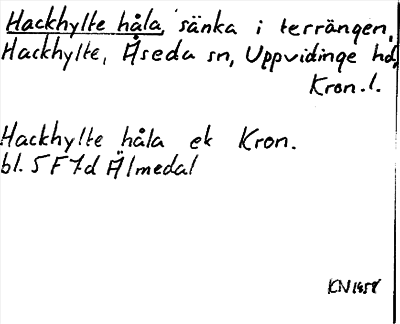 Hackhylte håla, sänka i terrängen,
Hackhylte, Åseda sn, Uppvidinge hd,
Kron. l.
Hackhylte håla ek Kron.
bl. 5 F 7d Älmedal
KN 1958